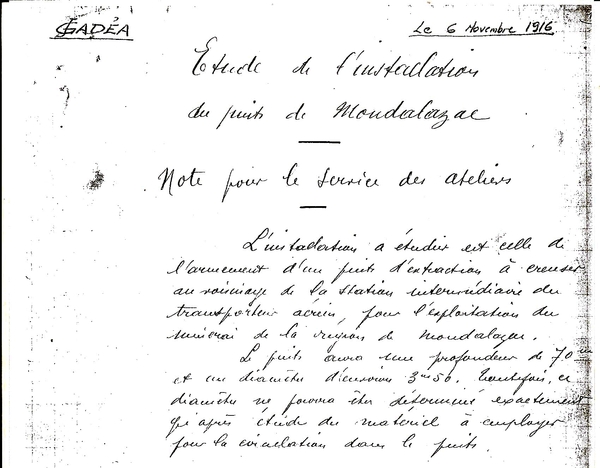 GADÉA
Le 6 Novembre 1916
Etude de l'installation
du puits de Mondalazac
Note pour le service des ateliers
L'installation à étudier est celle de
l'armement d'un puits d'extraction à creuser
au voisinage de la station intermédiaire du
transporteur aérien, pour l'exploitation du
minerai de la région de Mondalazac.
Le puits aura une profondeur de 70 m
et un diamètre d'environ 3m50. Toutefois, ce
diamètre ne pourra être déterminé exactement
qu'après étude du matériel à employer
pour la circulation dans le puits.